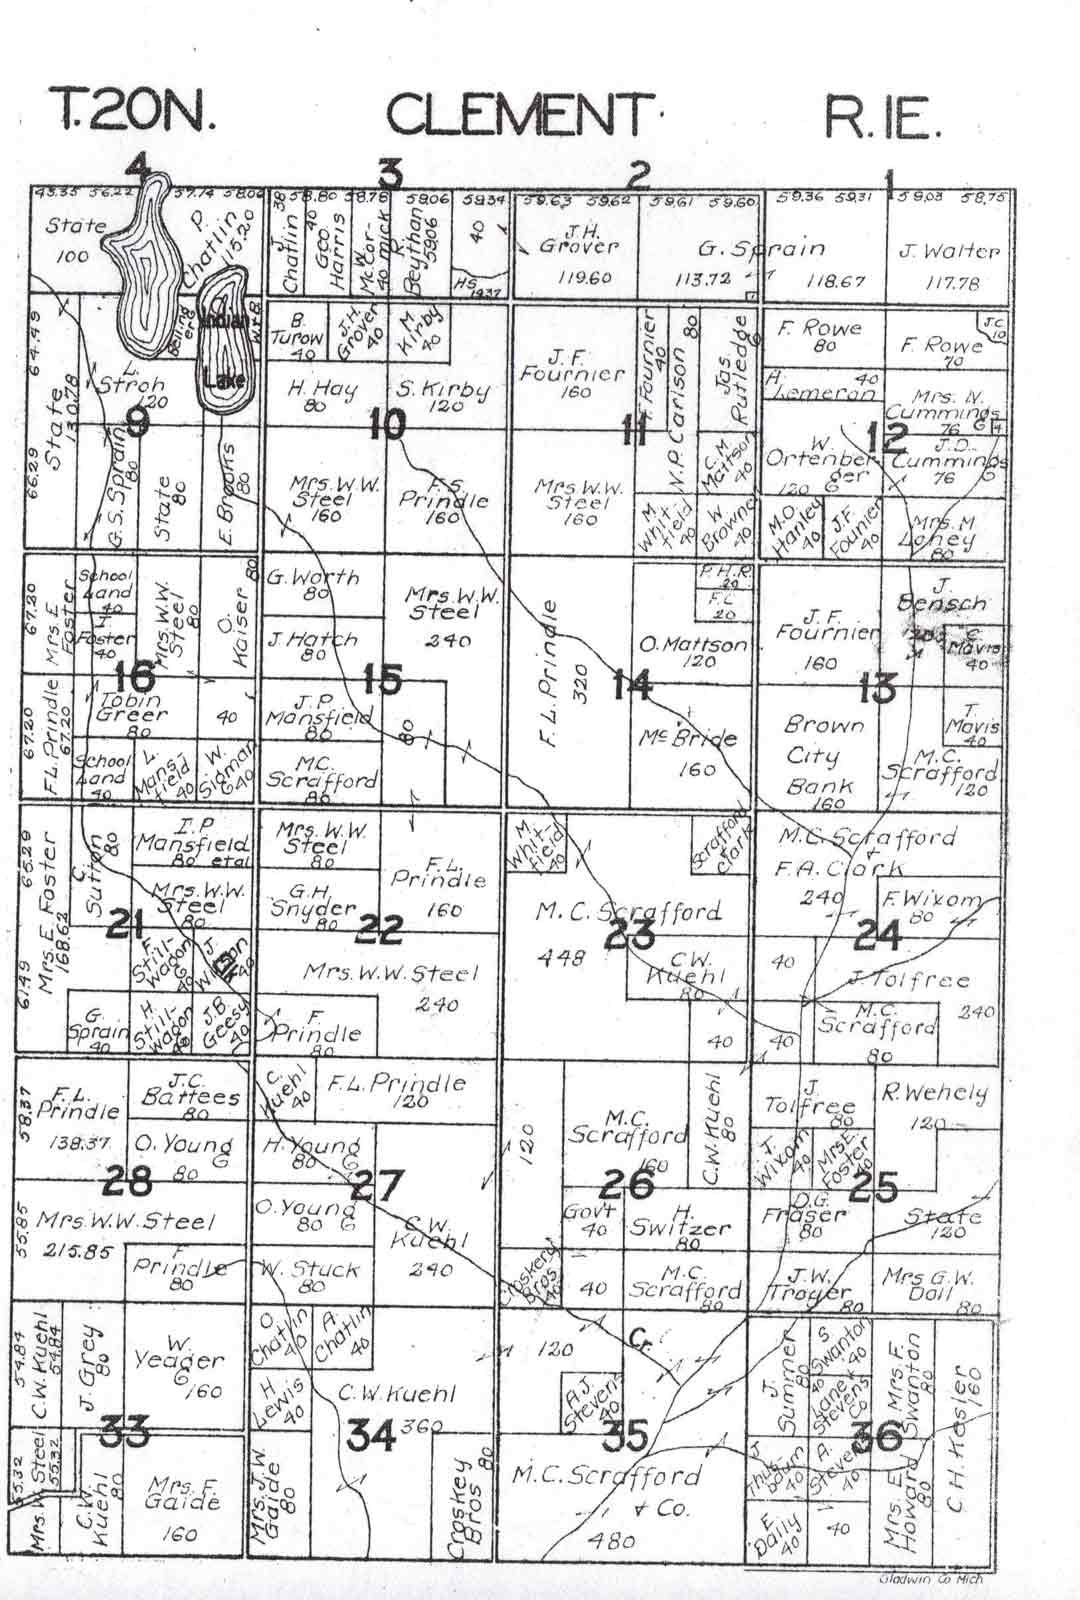 T.20N. CLEMENT R.1E.
4 3 2 1
43.35 56.22 57.14 58.06 39 58.80 58.78 59.06 59.34 59.63 59.62 59.61 59.60 59.36 59.31 59.03 58.75
State
100
P.
Chatlin
115.20
J.
Chatlin
40
Geo
Harris
W.
McCor-
mick
40
R.
Beythan
59.06
40
H.S.
19.37
J.H.
Grover
119.60
G. Sprain
113.72
118.67
J. Walter
117.78
64.49
66.29
State
130.78
L.
Stroh
120
9
Indian
Lake
G.S. Sprain
80
State
80
E. Brooks
80
B.
Turow
40
J.H.
Grover
40
M.
Kirby
40
H. Hay
80
S. Kirby
120
10
Mrs. W.W.
Steel
160
F.S.
Prindle
160
J.F.
Fournier
160
F. Fournier
40
N.P. Carlson
80
Jas.
Rutledge
11
Mrs. W.W.
Steel
160
C.M.
Mattson
40
M.
Whit-
field
40
W
Browne
40
F. Rowe
80
J.C.
10
F. Rowe
70
H.
Lemeron
40
Mrs. N.
Cummings
76 G 4
12
W.
Ortenber-
ger
120 G
J.D.
Cummings
76 G
M.O.
Hanley
40
J.F.
Founier
40
Mrs. M
Loney
80
67.20
Mrs. E
Foster
School
Land
40
I.
Foster
40
Mrs. W.W.
Steel
80
O.
Kaiser
80
16
67.20
F.L. Prindle
67.20
Tobin
Greer
80
40
School
Land
40
L.
Mans-
field
40
W.
Sigman
G 40
G. Worth
80
J. Hatch
80
Mrs. W.W.
Steel
240
15
J.P
Mansfield
80
M.C.
Scrafford
80
80
F.L. Prindle
320
P.H.R.
20
F.L
20
O. Mattson
120
14
McBride
160
J.F.
Fournier
160
J.
Bensch
120
C.
Mavis
40
13
Brown
City
Bank
160
T.
Mavis
40
M.C.
Scrafford
120
65.29
61.49
Mrs. E. Foster
168.62
C.
Sutton
80
I.P
Mansfield
80 etal
Mrs. W.W.
Steel
80
21
F.
Still-
wagon
G
40
J.
Wilson
40
G.
Sprain
40
H.
Still-
wagon
40
J.B.
Geesy
40
Mrs. W.W.
Steel
80
G.H.
Snyder
80
F.L.
Prindle
160
22
Mrs. W.W. Steel
240
F.
Prindle
80
M.
Whit-
field
40
Scrafford
&
Clark
M.C. Scrafford
448
23
C.W.
Kuehl
80
40
M.C. Scrafford
&
F.A. Clark
240
F. Wixom
80
24
40
J. Tolfree
240
M.C.
Scrafford
80
40
58.37
F.L.
Prindle
138.37
J.C.
Battees
80
O. Young
G
80
28
55.85
Mrs. W.W. Steel
215.85
F.
Prindle
80
C.
Kuehl
40
F.L. Prindle
120
H. Young
80 G
27
O. Young
80 G
C.W.
Kuehl
240
W. Stuck
80
120
M.C.
Scrafford
160
C.W. Kuehl
80
26
Govt
40
H.
Switzer
80
Croskery
Bros
40
40
M.C.
Scrafford
80
J.
Tolfree
80
R. Wehely
120
T.
Wixom
40
Mrs. E.
Foster
40
25
D.G.
Fraser
80
State
120
J.W.
Troyer
80
Mrs G.W.
Doll
80
54.84
C.W. Kuehl
54.84
J. Grey
80
W.
Yeager
G
160
33
55.32
Mrs. W. Steel
55.32
C.W.
Kuehl
80
Mrs. F.
Gaide
160
O.
Chatlin
40
A.
Chatlin
40
H
Lewis
40
C.W. Kuehl
360
34
Mrs. J.W.
Gaide
80
Croskey
Bros
80
120
Cr.
A.J.
Stevens
40
35
M.C. Scrafford
& Co.
480
J.
Summer
80
S
Swanton
40
Lane &
Stevens
Co
40
Mrs. F.
Swanton
80
C.H. Kesler
160
36
A.
Stevens
40
E.
Daily
40
40
Mrs. E.
Howard
80
Gladwin Co Mich